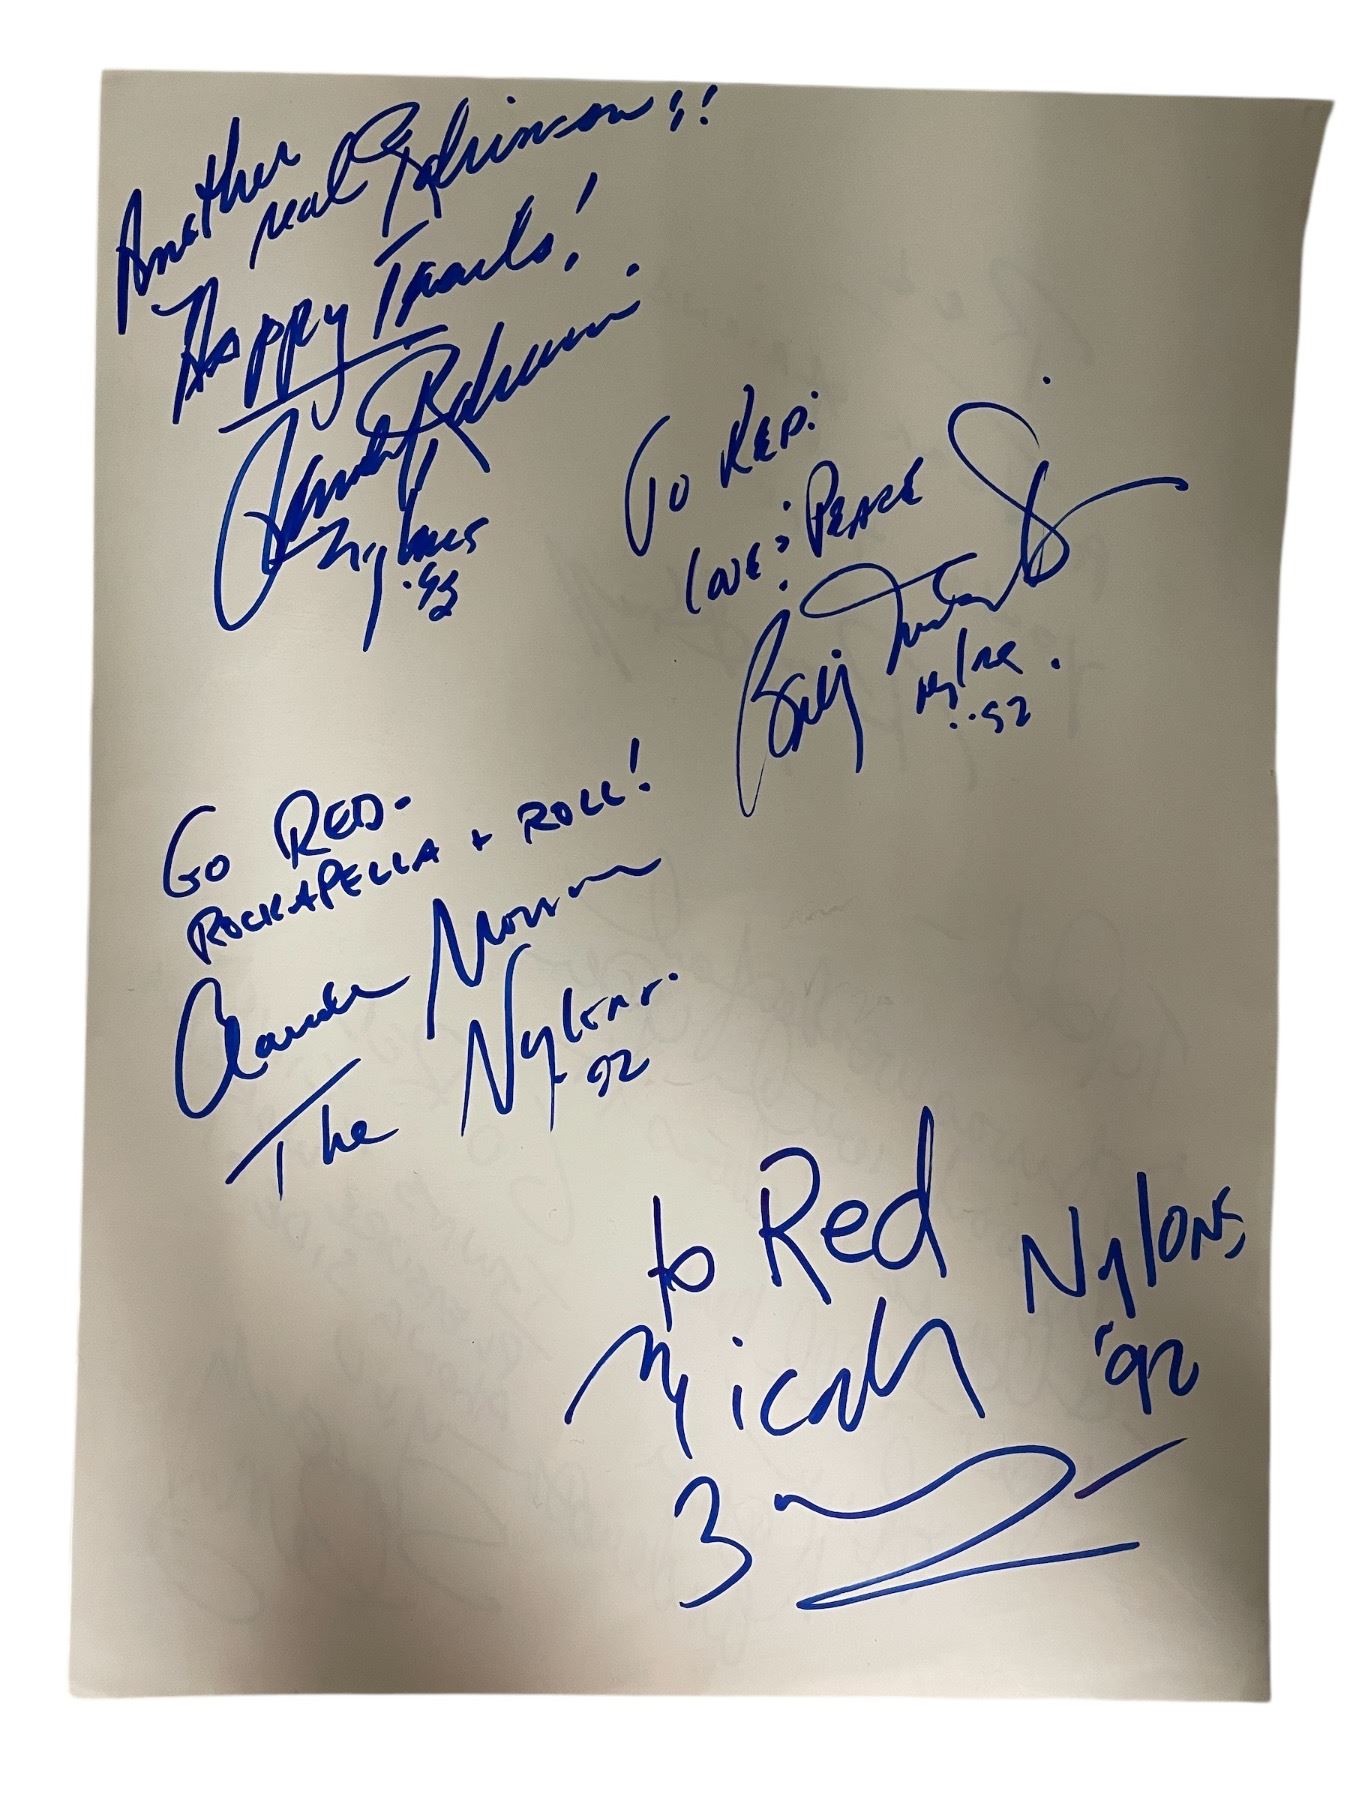 Another
real Robinson!!
Happy Trails!
Arnold Robinson
Nylons
'92
To Red:
Love & Peace
Billy Newton-Davis
Nylons
'92
GO RED-
ROCKAPELLA + ROLL!
Claude Morrison
The Nylons.
92
to Red
Micah
Nylons,
'92